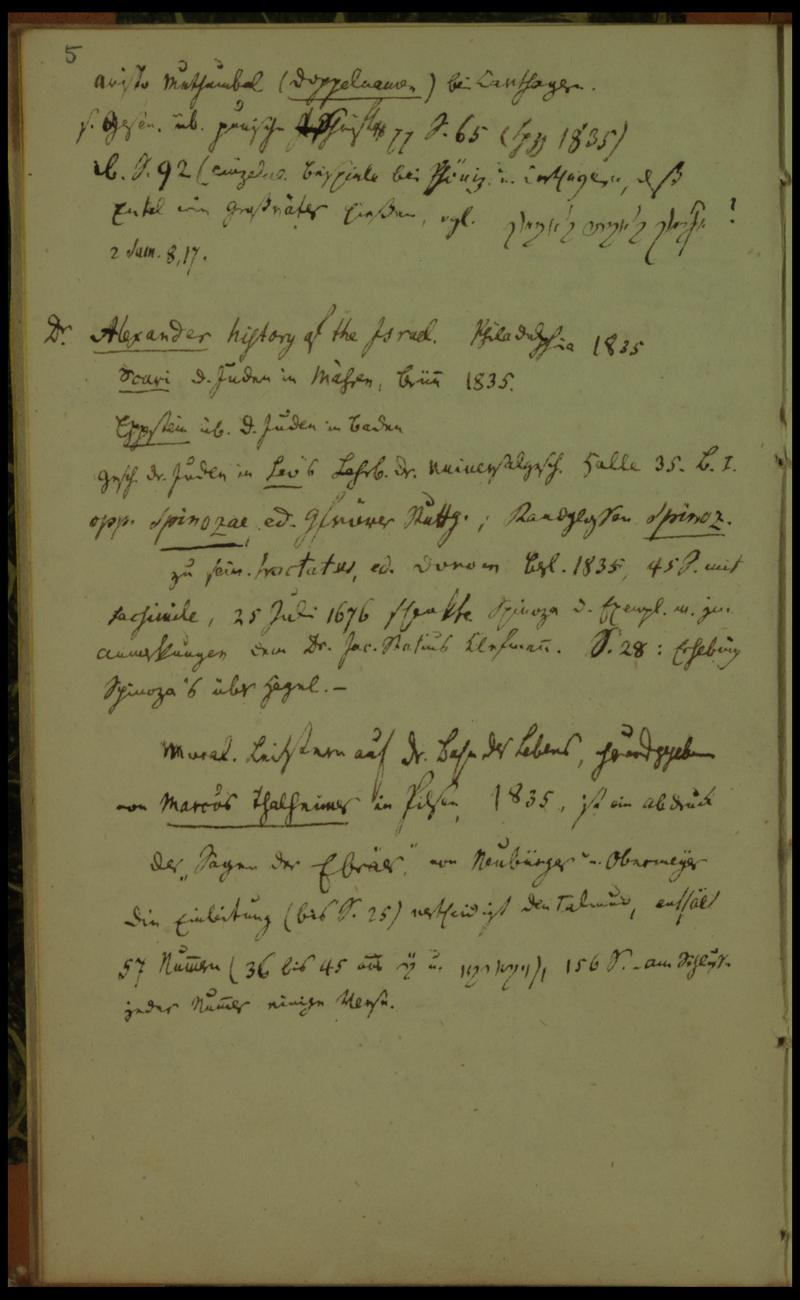 5
aristo Muthumbal (Doppelnamen) bei Carthagern.
s. Gesen. üb. punische S. 65 (Lpz 1835)
ib. S. 92 (einzelne Beispiele bei Phöniz. u. Carthagern, daß
Enkel wie Großväter hießen, vgl. ?
2 Sam. 8,17.
Dr. Alexander history of the Israel. Philadelphia 1835
Scari d. Juden in Mähren, Brünn 1835.
Eppstein üb. d. Juden in Baden
Gesch. der Juden in Leo's Lehrb. der Universalgesch. Halle 35. B. I.
opp. Spinozae, ed. Gfrörer Stuttg.; Randglossen Spinoz.
zu sein. tractatus, ed. Dorow Berl. 1835, 45 S. mit
Facsimile, 25 Juli 1676 schenkte Spinoza d. Exempl. m. jen.
Anmerkungen dem Dr. Jac. Statius Klefmann. S. 28: Erhebung
Spinoza's über Hegel. –
Moral. Leitstern auf der Bahn des Lebens, herausgegeben
von Marcus Thalheimer in Pilsen, 1835, ist ein Abdruck
der „Sagen der Ebräer" von Neubürger u. Obermeyer
Die Einleitung (bis S. 25) vertheidigt den Talmud, enthält
57 Numern (36 bis 45 aus u. 156 S. – am Schluss
jeder Numer einige Verse.